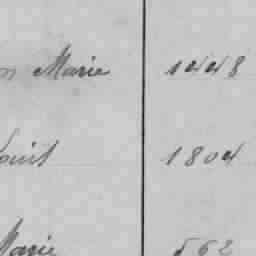 Marie 1448
Louis 1804
Marie 562